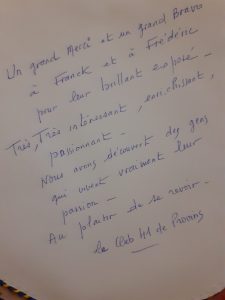 Un grand Merci et un grand Bravo
à Franck et à Frédéric
pour leur brillant exposé -
Très, Très intéressant, enrichissant,
passionnant -
Nous avons découvert des gens
qui vivent vraiment leur
passion -
Au plaisir de se revoir -
le Club 41 de Provins